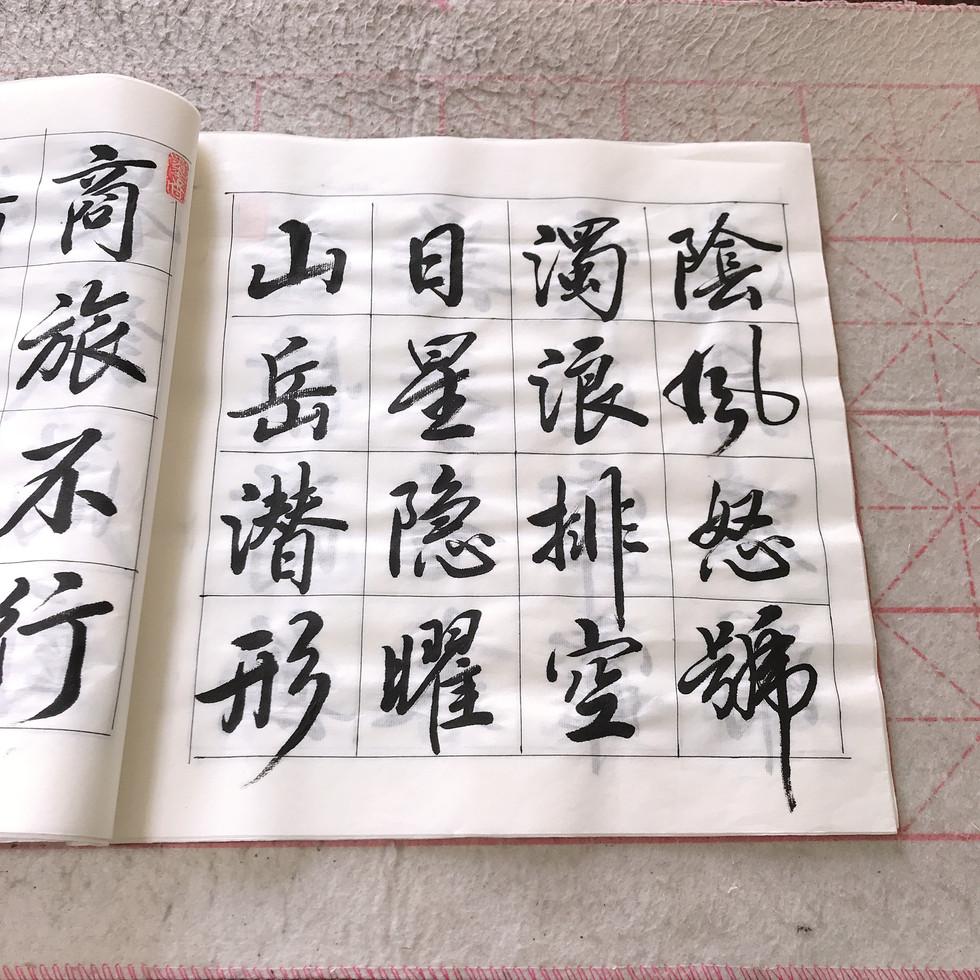 陰風怒號
濁浪排空
日星隐曜
山岳潜形
商旅不行